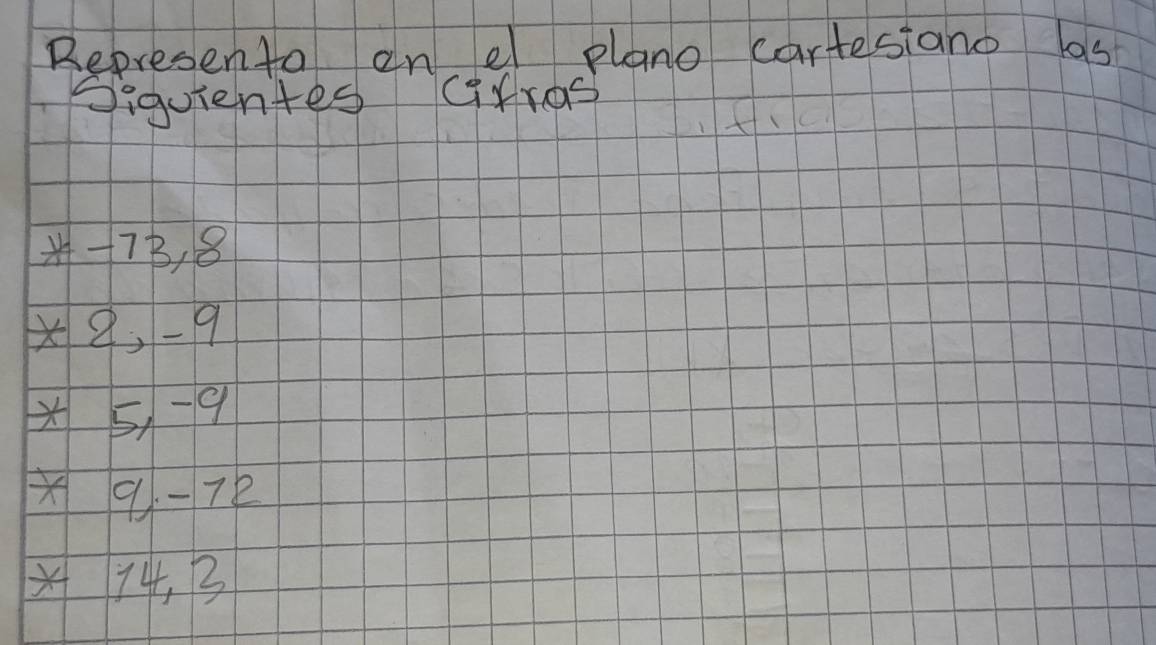 Represento en el plano cartesiano las
Siguientes Cifras
* -13,8
* 2, -9
* 5, -9
* 9, -12
* 14, 3